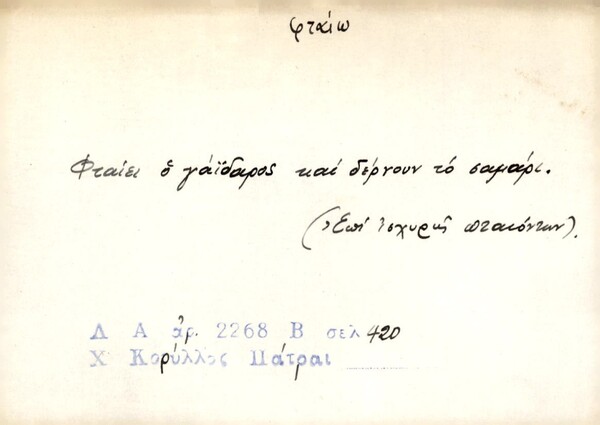 φταίω
Φταίει ὁ γάϊδαρος καί δέρνουν τό σαμάρι.
(Ἐπί ἰσχυρῶς πταιόντων).
Λ Α ἀρ. 2268 Β σελ 420
Χ Κορύλλος Πάτραι